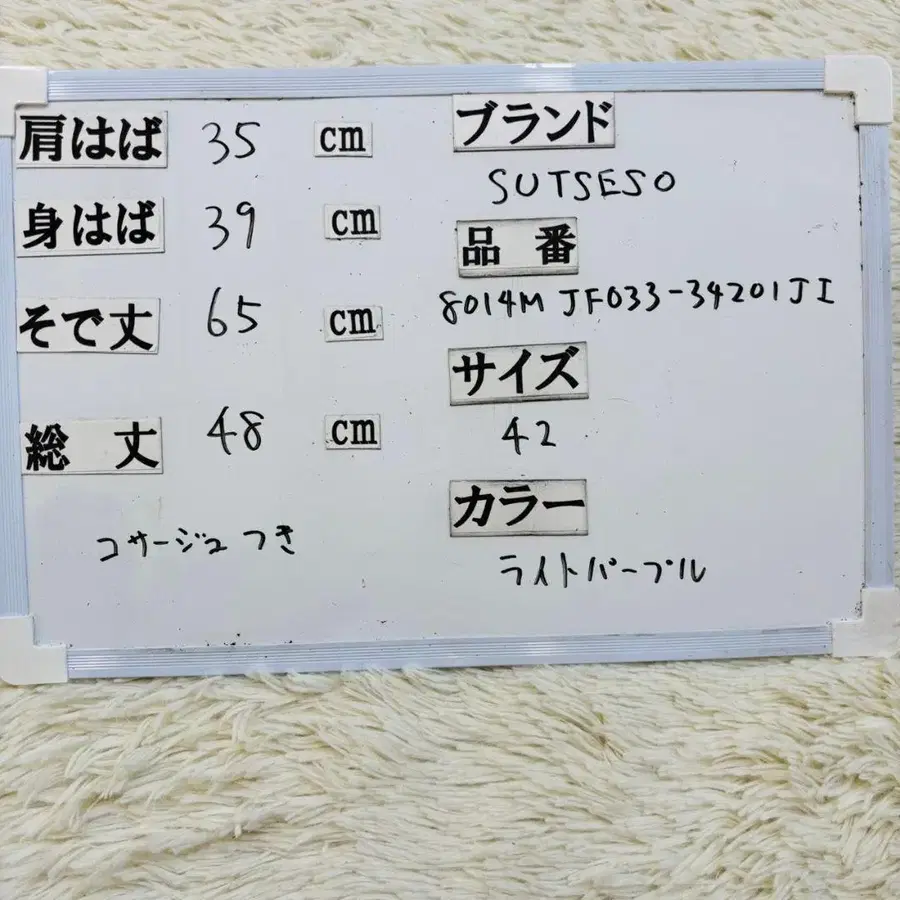 肩はば 35 cm
身はば 39 cm
そで丈 65 cm
総丈 48 cm
コサージュつき
ブランド
SUTSESO
品番
8014M JF033-34201JI
サイズ
42
カラー
ライトパープル